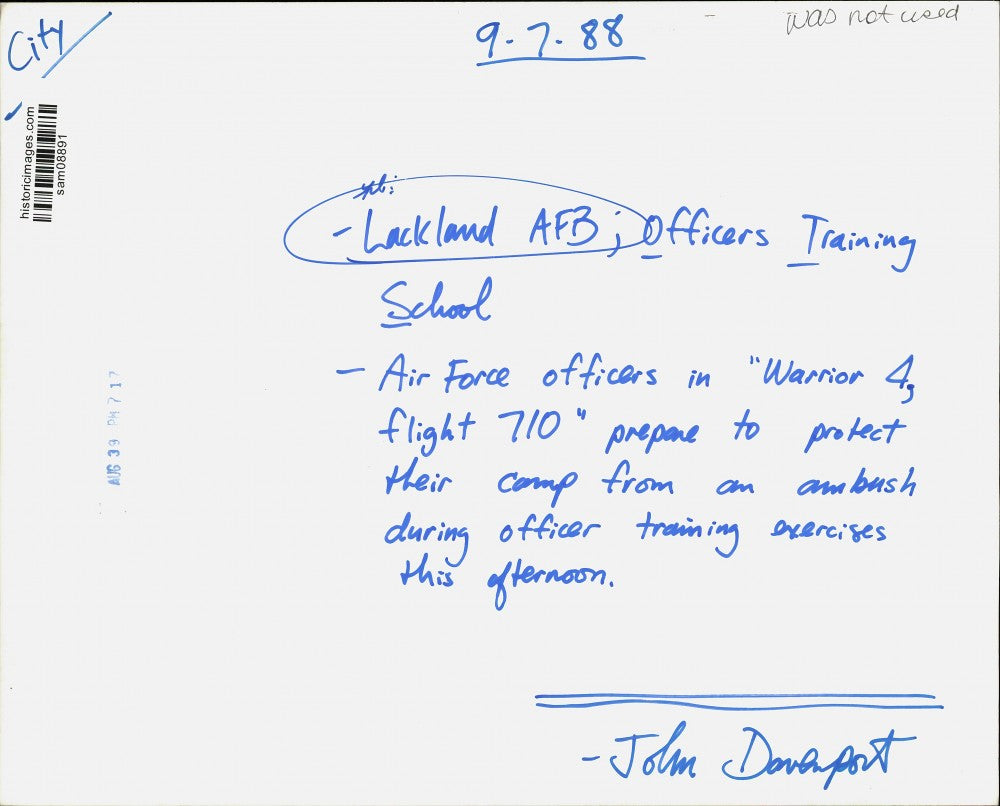 City
9-7-88
was not used
historicimages.com
sam08891
- Lackland AFB; Officers Training
School
- Air Force officers in "Warrior 4,
flight 710" prepare to protect
their camp from an ambush
during officer training exercises
this afternoon.
AUG 39 PM 7 17
- John Davenport